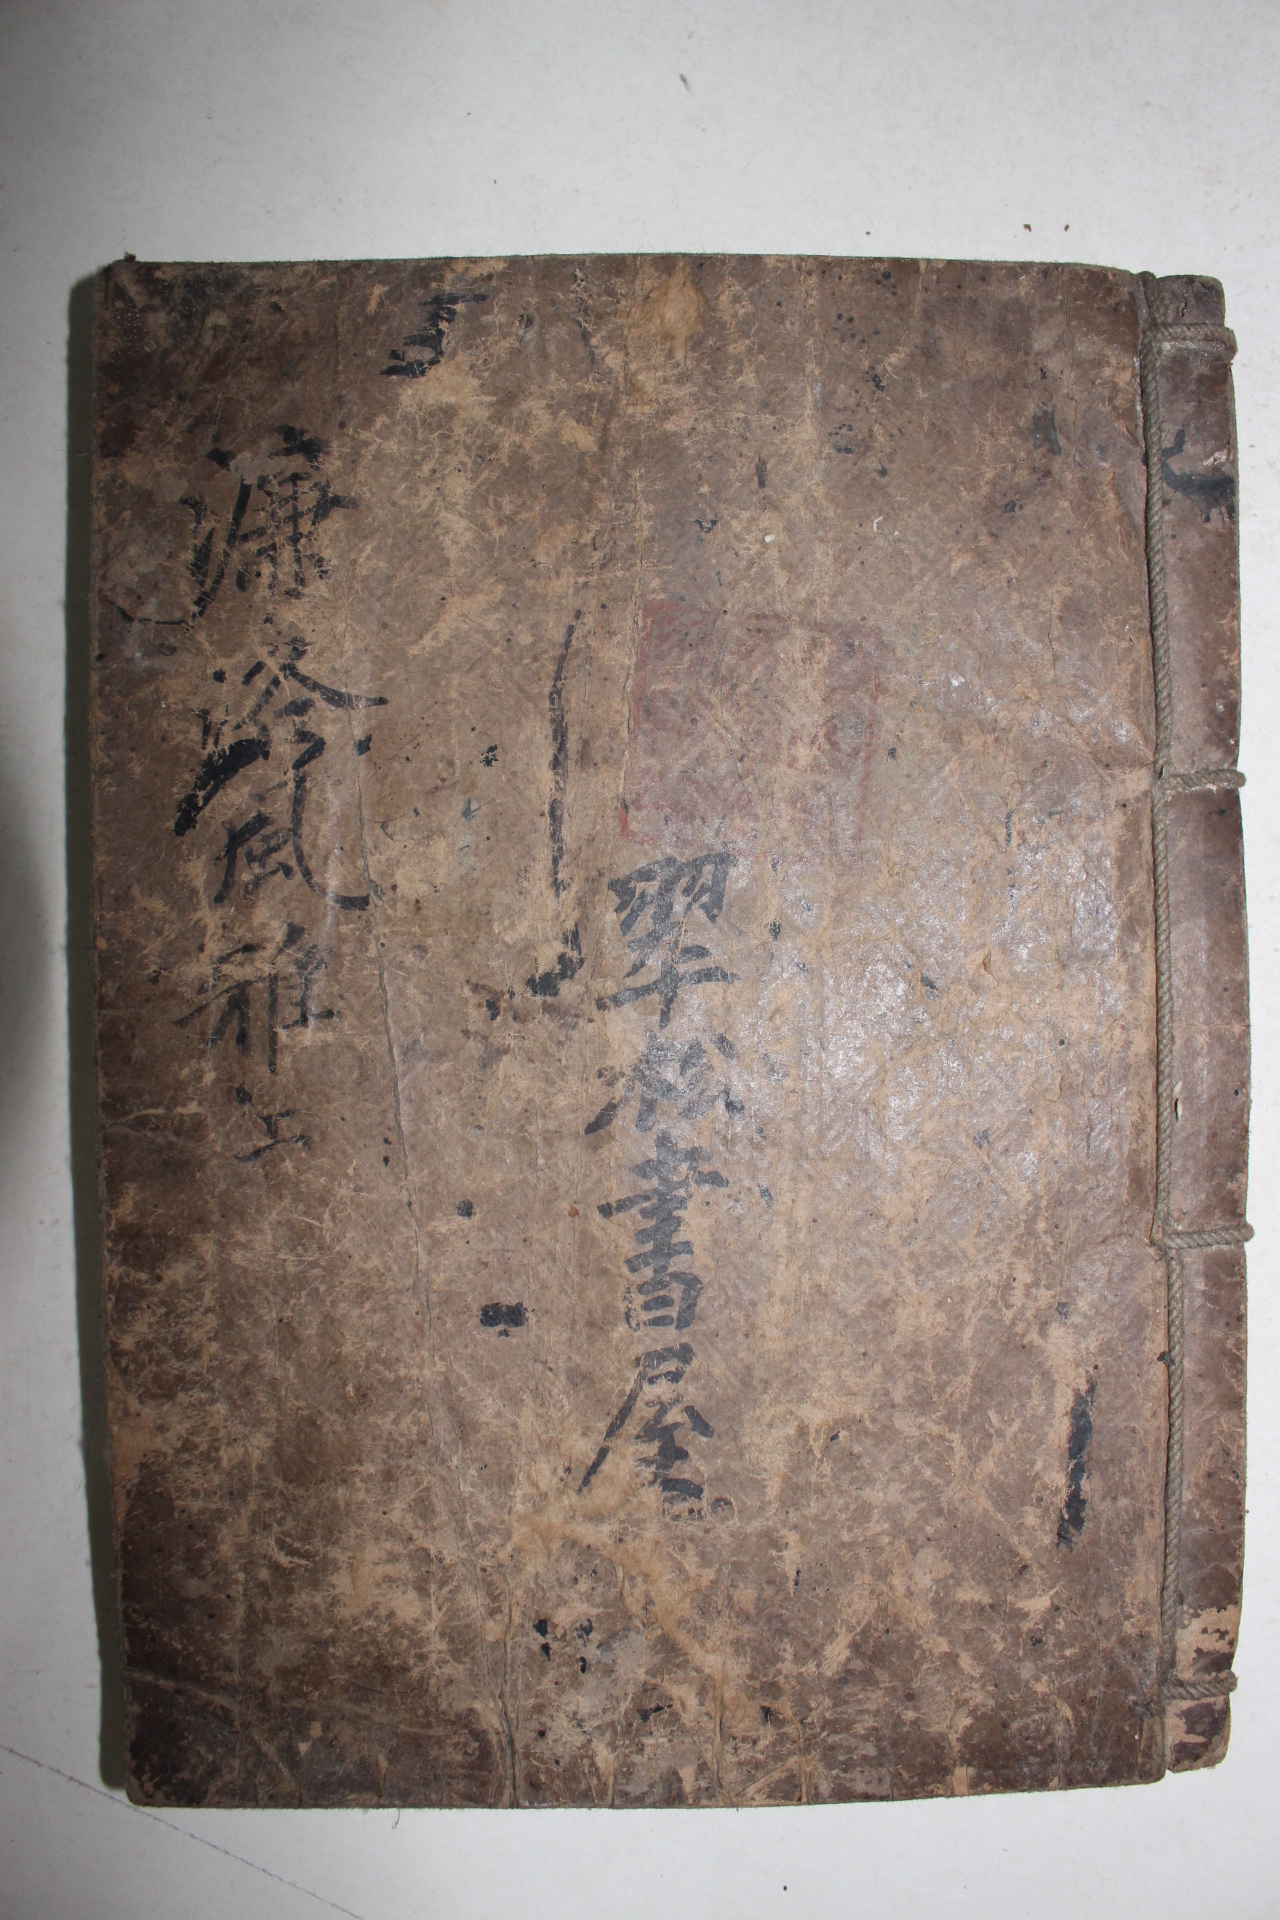 翠松書屋
濂洛風雅 上